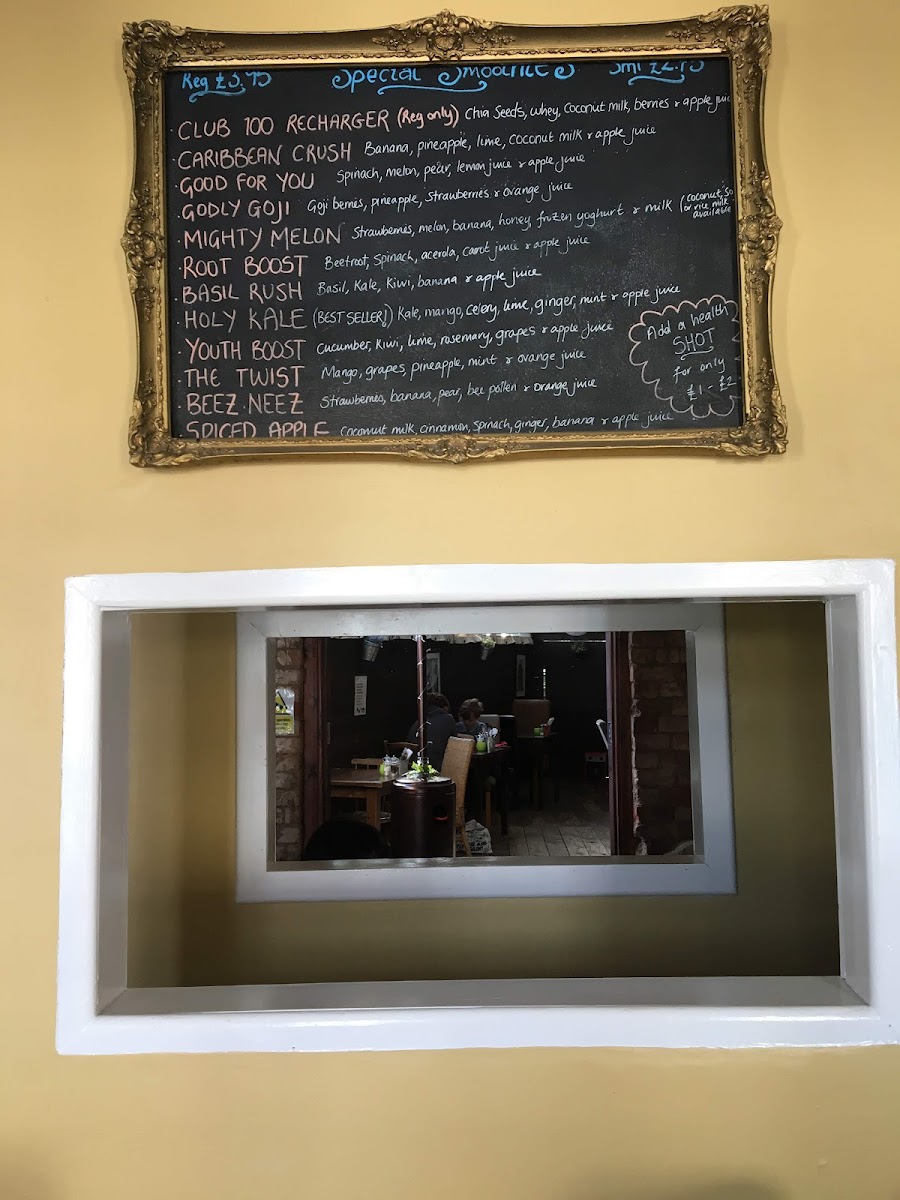 Reg £3.95 Special Smoothies Sml £2.75
· CLUB 100 RECHARGER (Reg only) Chia Seeds, whey, Coconut milk, berries & apple juice
· CARIBBEAN CRUSH Banana, pineapple, lime, coconut milk & apple juice
· GOOD FOR YOU Spinach, melon, pear, lemon juice & apple juice
· GODLY GOJI Goji berries, pineapple, strawberries & orange juice
· MIGHTY MELON Strawberries, melon, banana, honey, frozen yoghurt & milk (coconut, so
or rice milk
available
· ROOT BOOST Beetroot, spinach, acerola, carrot juice & apple juice
· BASIL RUSH Basil, Kale, Kiwi, banana & apple juice
· HOLY KALE (BEST SELLER!) Kale, mango, celery, lime, ginger, mint & apple juice
· YOUTH BOOST Cucumber, kiwi, lime, rosemary, grapes & apple juice
· THE TWIST Mango, grapes, pineapple, mint & orange juice
· BEEZ NEEZ Strawberries, banana, pear, bee pollen & orange juice
SPICED APPLE Coconut milk, cinnamon, spinach, ginger, banana & apple juice
Add a health
SHOT
for only
£1 - £2